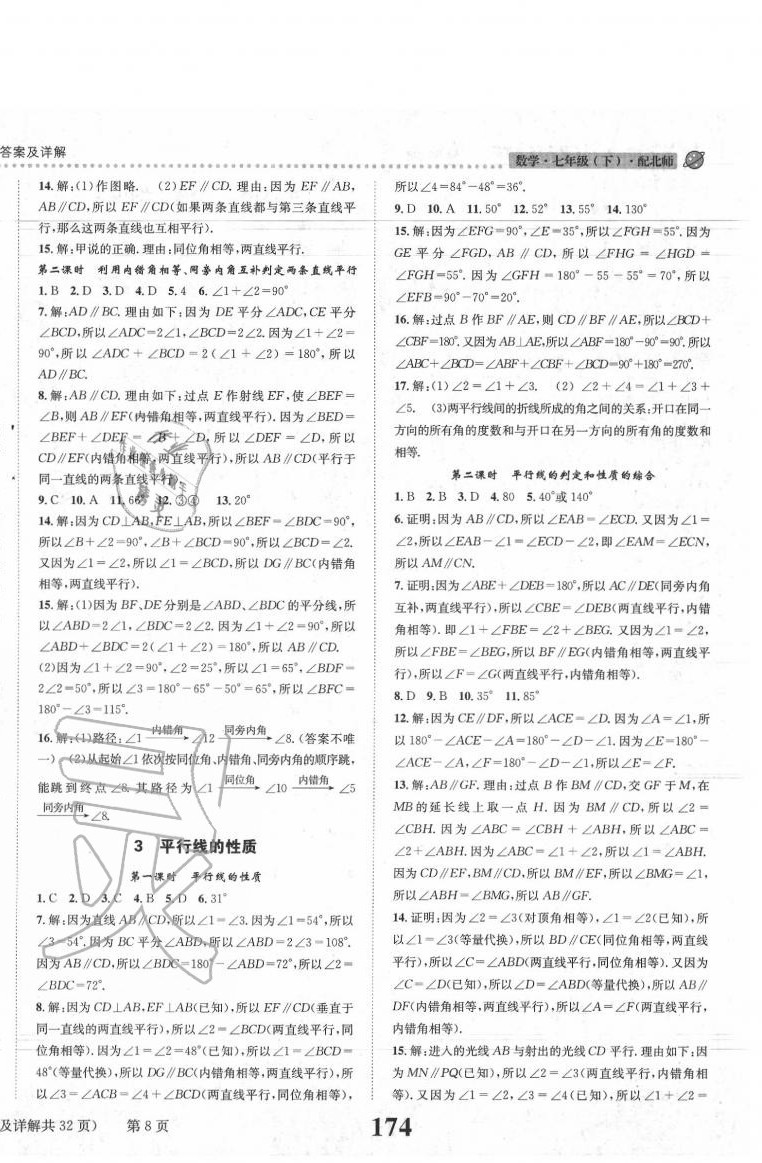 答案及详解
数学·七年级(下)·配北师
14. 解:(1)作图略. (2)EF∥CD. 理由:因为 EF∥AB,
AB∥CD,所以 EF∥CD(如果两条直线都与第三条直线平
行,那么这两条直线也互相平行).
15. 解:甲说的正确. 理由:同位角相等,两直线平行.
第二课时 利用内错角相等、同旁内角互补判定两条直线平行
1. B 2. D 3. D 4. D 5. 4 6. ∠1+∠2=90°
7. 解:AD∥BC. 理由如下:因为 DE 平分∠ADC,CE 平分
∠BCD,所以∠ADC=2∠1,∠BCD=2∠2. 因为∠1+∠2=
90°,所以∠ADC+∠BCD=2(∠1+∠2)=180°,所以
AD∥BC.
8. 解:AB∥CD. 理由如下:过点 E 作射线 EF,使∠BEF=
∠B,则 AB∥EF(内错角相等,两直线平行). 因为∠BED=
∠BEF+∠DEF=∠B+∠D,所以∠DEF=∠D,所以
CD∥EF(内错角相等,两直线平行),所以 AB∥CD(平行于
同一直线的两条直线平行).
9. C 10. A 11. 66° 12. ③④ 13. 20°
14. 解:因为 CD⊥AB,FE⊥AB,所以∠BEF=∠BDC=90°,
所以∠B+∠2=90°,∠B+∠BCD=90°,所以∠BCD=∠2.
又因为∠1=∠2,所以∠1=∠BCD,所以 DG∥BC(内错角
相等,两直线平行).
15. 解:(1)因为 BF、DE 分别是∠ABD、∠BDC 的平分线,所
以∠ABD=2∠1,∠BDC=2∠2. 因为∠1+∠2=90°,所以
∠ABD+∠BDC=2(∠1+∠2)=180°,所以 AB∥CD.
(2)因为∠1+∠2=90°,∠2=25°,所以∠1=65°,∠BDF=
2∠2=50°,所以∠3=180°-65°-50°=65°,所以∠BFC=
180°-∠3=115°.
16. 解:(1)路径:∠1 内错角→ ∠12 同旁内角→ ∠8. (答案不唯
一) (2)从起始∠1 依次按同位角、内错角、同旁内角的顺序跳,
能跳到终点∠8. 其路径为∠1 同位角→ ∠10 内错角→ ∠5
同旁内角→ ∠8.
3 平行线的性质
第一课时 平行线的性质
1. C 2. D 3. C 4. B 5. D 6. 31°
7. 解:因为直线 AB∥CD,所以∠1=∠3. 因为∠1=54°,所以
∠3=54°. 因为 BC 平分∠ABD,所以∠ABD=2∠3=108°.
因为 AB∥CD,所以∠BDC=180°-∠ABD=72°,所以∠2=
∠BDC=72°.
8. 解:因为 CD⊥AB,EF⊥AB(已知),所以 EF∥CD(垂直于
同一直线的两直线平行),所以∠2=∠BCD(两直线平行,同
位角相等). 因为∠1=∠2=48°(已知),所以∠1=∠BCD=
48°(等量代换),所以 DG∥BC(内错角相等,两直线平行),所
以∠3=∠ACB=∠4+∠BCD(两直线平行,同位角相等),
所以∠4=84°-48°=36°.
9. D 10. A 11. 50° 12. 52° 13. 55° 14. 130°
15. 解:因为∠EFG=90°,∠E=35°,所以∠FGH=55°. 因为
GE 平分∠FGD,AB∥CD,所以∠FHG=∠HGD=
∠FGH=55°. 因为∠GFH=180°-55°-55°=70°,所以
∠EFB=90°-70°=20°.
16. 解:过点 B 作 BF∥AE,则 CD∥BF∥AE,所以∠BCD+
∠CBF=180°. 又因为 AB⊥AE,所以∠ABF=180°-90°=90°. 所以
∠ABC+∠BCD=∠ABF+∠CBF+∠BCD=90°+180°=270°.
17. 解:(1)∠2=∠1+∠3. (2)∠2+∠4=∠1+∠3+
∠5. (3)两平行线间的折线所成的角之间的关系:开口在同一
方向的所有角的度数和与开口在另一方向的所有角的度数和
相等.
第二课时 平行线的判定和性质的综合
1. B 2. B 3. D 4. 80 5. 40°或 140°
6. 证明:因为 AB∥CD,所以∠EAB=∠ECD. 又因为∠1=
∠2,所以∠EAB-∠1=∠ECD-∠2,即∠EAM=∠ECN,
所以 AM∥CN.
7. 证明:因为∠ABE+∠DEB=180°,所以 AC∥DE(同旁内角
互补,两直线平行),所以∠CBE=∠DEB(两直线平行,内错
角相等). 即∠1+∠FBE=∠2+∠BEG. 又因为∠1=∠2,
所以∠FBE=∠BEG,所以 BF∥EG(内错角相等,两直线平
行),所以∠F=∠G(两直线平行,内错角相等).
8. D 9. B 10. 35° 11. 85°
12. 解:因为 CE∥DF,所以∠ACE=∠D. 因为∠A=∠1,所
以 180°-∠ACE-∠A=180°-∠D-∠1. 因为∠E=180°-
∠ACE-∠A,∠F=180°-∠D-∠1,所以∠E=∠F.
13. 解:AB∥GF. 理由:过点 B 作 BM∥CD,交 GF 于 M,在
MB 的延长线上取一点 H. 因为 BM∥CD,所以∠2=
∠CBH. 因为∠ABC=∠CBH+∠ABH,所以∠ABC=
∠2+∠ABH. 因为∠ABC=∠1+∠2,所以∠1=∠ABH.
因为 CD∥EF,BM∥CD,所以 BM∥EF,所以∠BMG=∠1,
所以∠ABH=∠BMG,所以 AB∥GF.
14. 证明:因为∠2=∠3(对顶角相等),∠1=∠2(已知),所
以∠1=∠3(等量代换),所以 BD∥CE(同位角相等,两直线
平行),所以∠C=∠ABD(两直线平行,同位角相等). 又因为
∠C=∠D(已知),所以∠D=∠ABD(等量代换),所以 AB∥
DF(内错角相等,两直线平行),所以∠A=∠F(两直线平行,
内错角相等).
15. 解:进入的光线 AB 与射出的光线 CD 平行. 理由如下:因
为 MN∥PQ(已知),所以∠2=∠3(两直线平行,内错角相
等). 又因为∠1=∠2,∠3=∠4(已知),所以∠1+∠2=
及详解共 32 页) 第 8 页
174